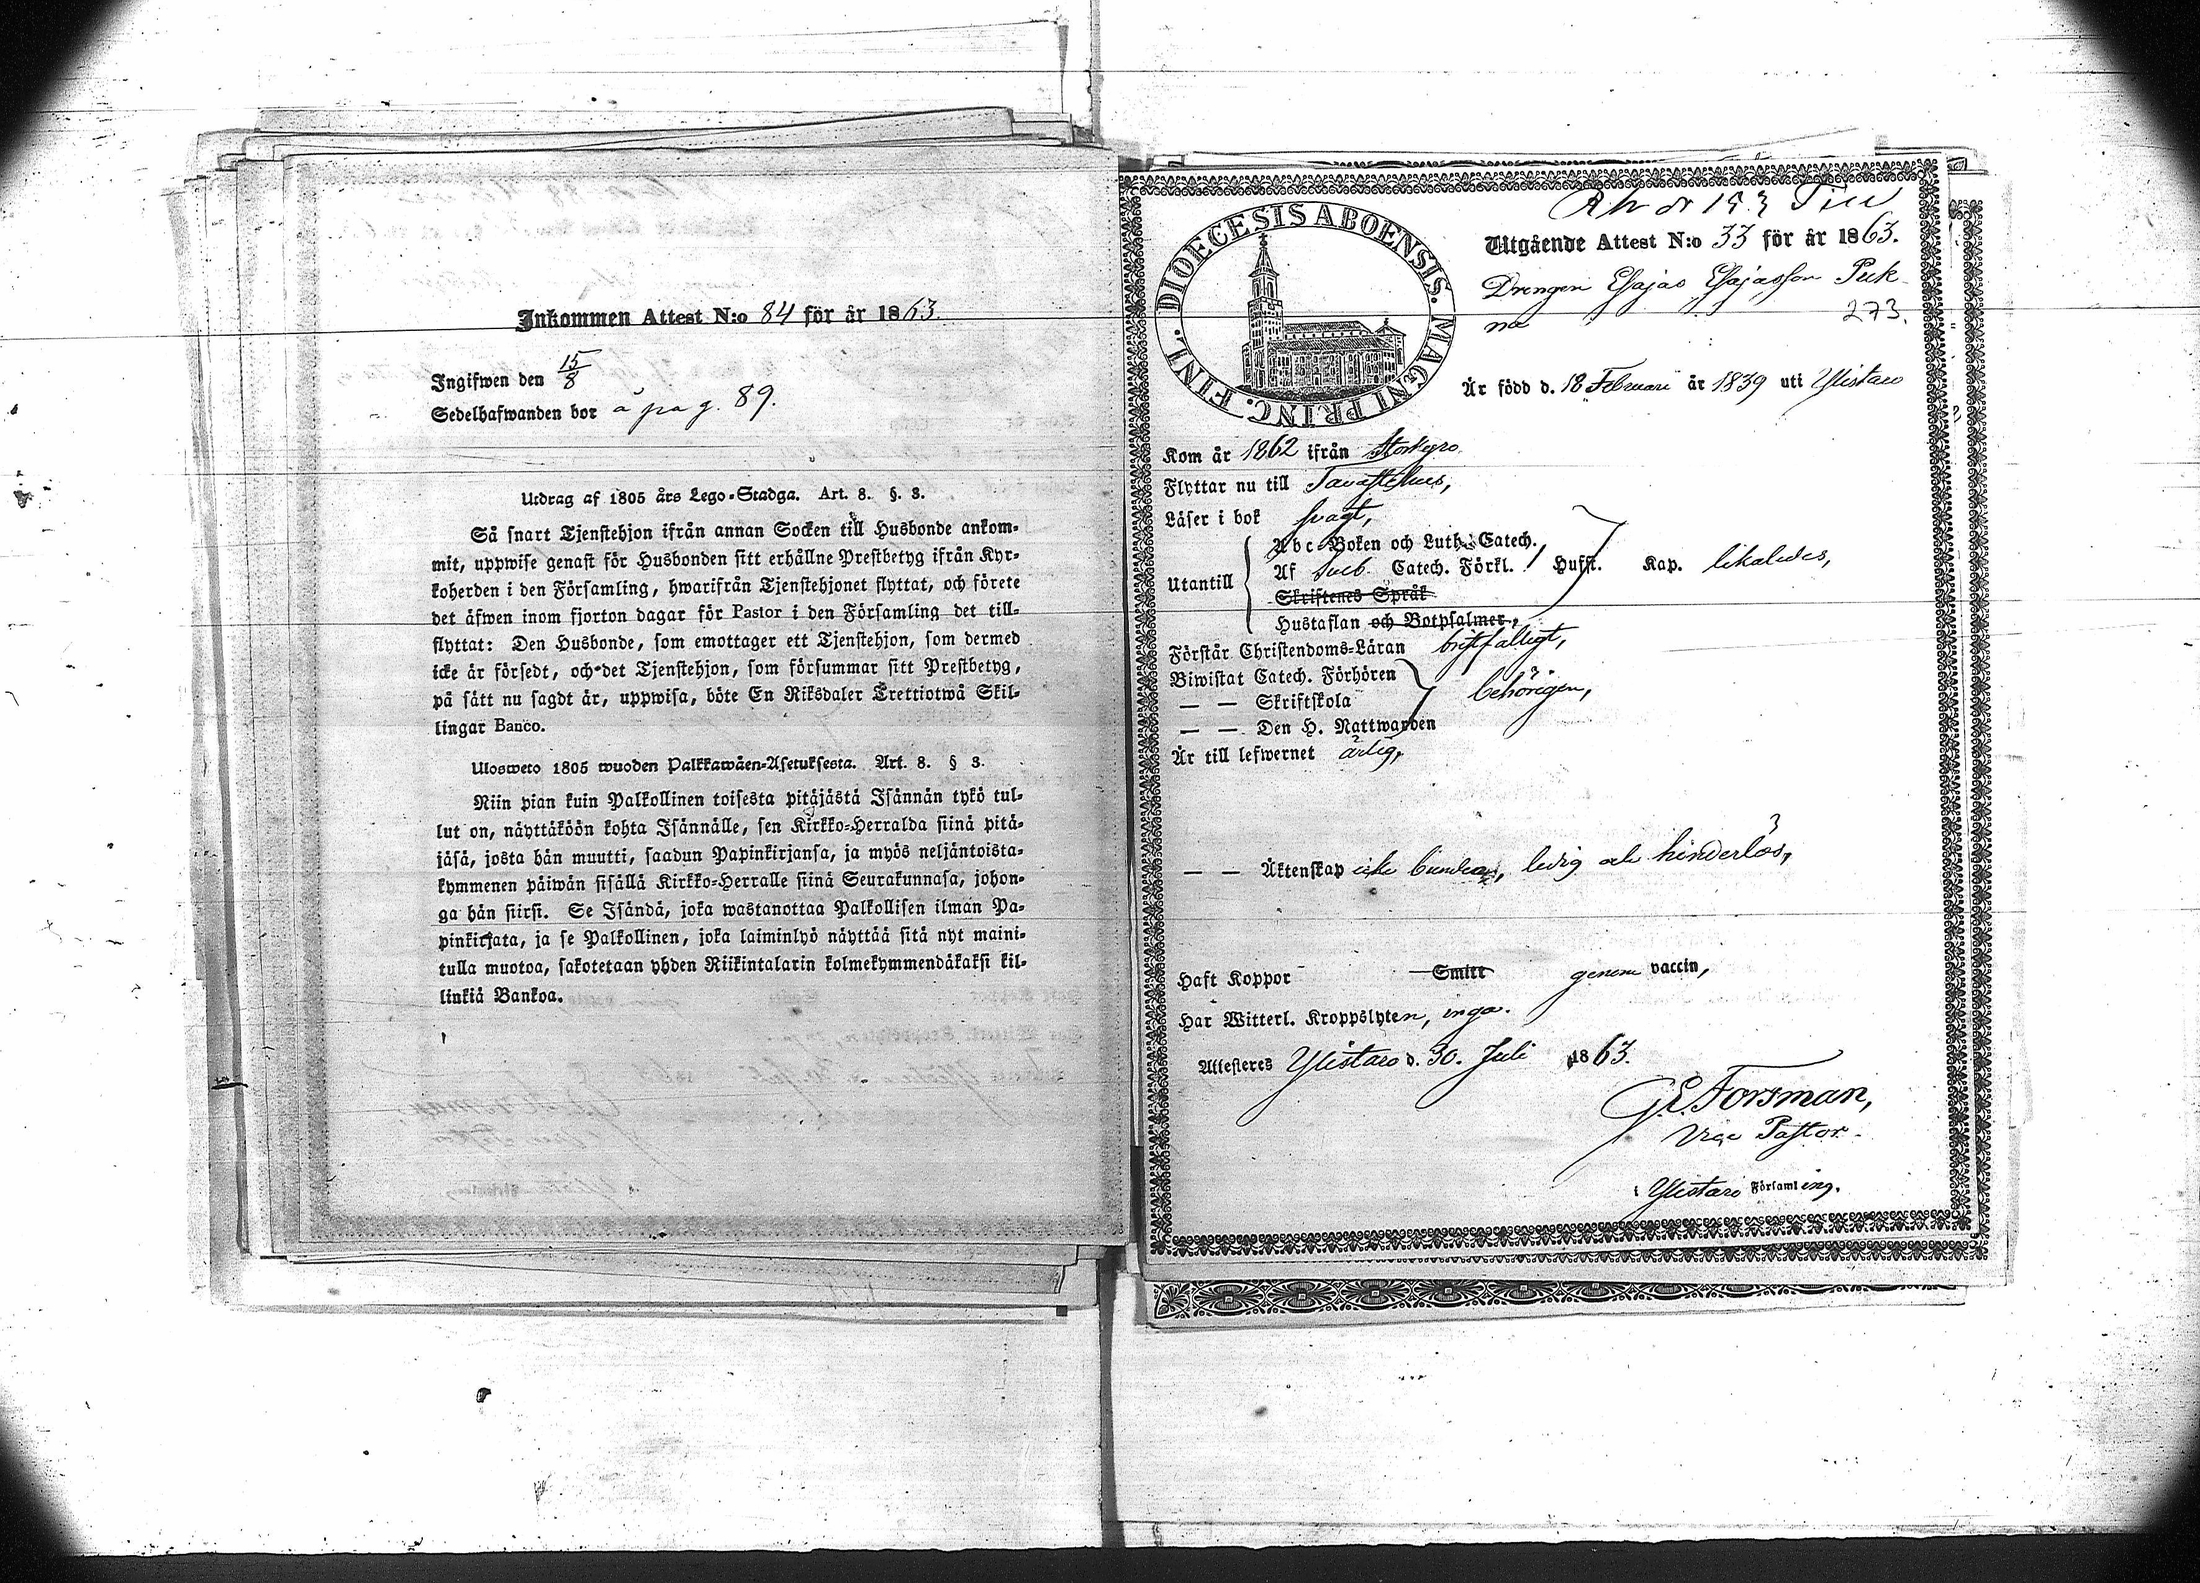 Inkommen Attest N:o 84 för år 1863.
Ingifwen den 15/8
Sedelhafwanden bor å pag. 89.
Utdrag af 1805 års Lego-Stadga. Art. 8. §. 3.
Så snart Tjenstehjon ifrån annan Socken till Husbonde ankom-
mit, uppwise genast för Husbonden sitt erhållne Prestbetyg ifrån Kyr-
koherden i den Församling, hwarifrån Tjenstehjonet flyttat, och förete
det äfwen inom fjorton dagar för Pastor i den Församling det till-
flyttat: Den Husbonde, som emottager ett Tjenstehjon, som dermed
icke är försedt, och det Tjenstehjon, som försummar sitt Prestbetyg,
på sätt nu sagdt är, uppwisa, böte En Riksdaler Trettiotwå Skil-
lingar Banco.
Ulosweto 1805 wuoden Palkkawäen-Asetuksesta. Art. 8. § 3.
Niin pian kuin Palkollinen toisesta pitäjästä Isännän tykö tul-
lut on, näyttäköön kohta Isännälle, sen Kirkko-Herralda siinä pitä-
jäsä, josta hän muutti, saadun Papinkirjansa, ja myös neljäntoista-
kymmenen päiwän sisällä Kirkko-Herralle siinä Seurakunnasa, johon-
ga hän siirsi. Se Isändä, joka wastanottaa Palkollisen ilman Pa-
pinkirjata, ja se Palkollinen, joka laiminlyö näyttää sitä nyt maini-
tulla muotoa, sakotetaan yhden Riikintalarin kolmekymmendäkaksi kil-
linkiä Bankoa.
DIOECESIS ABOENSIS. MAGNI PRINC. FINL.
Utgående Attest N:o 33 för år 1863.
Drengen Esajas Esajasson Puk-
na 273.
Är född d. 18 Februari år 1839 uti Ylistaro
Kom år 1862 ifrån Storkyro
Flyttar nu till Tavastehus,
Läser i bok svagt,
Abc Boken och Luth. Catech.
Utantill Af Sveb. Catech. Förkl. Hufst. Kap. likaledes,
Skriftenes Språk
Hustaflan och Botpsalmer,
Förstår Christendoms-Läran bristfälligt,
Biwistat Catech. Förhören
— — Skriftskola behörigen,
— — Den H. Nattwarden
Är till lefwernet ärlig,
— — Äktenskap icke bunden, ledig och hinderlös,
Haft Koppor Smitt genom vaccin,
Har Witterl. Kroppslyten, inga.
Attesteres Ylistaro d. 30. Juli 1863.
G. E. Forsman,
Vice Pastor.
i Ylistaro Församling.